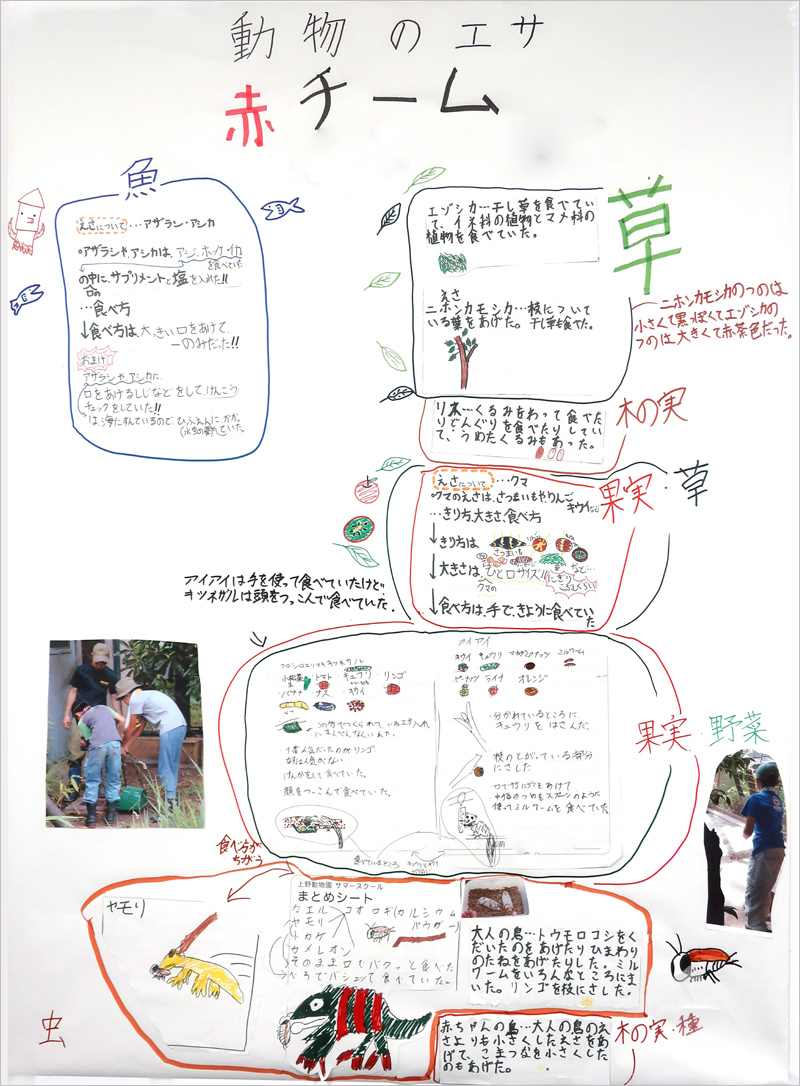 動物のエサ
赤チーム
魚
えさについて…アザラシ・アシカ
アザラシや、アシカは、アジ、ホッケ、イカ
を食べていた
の中に、サプリメントと塩を入れた!!
…食べ方
↓食べ方は、大っきい口をあけて、
一のみだった!!
おまけ
アザラシや、アシカに
口をあけるしじなどをして、けんこう
チェックをしていた!!
草
エゾシカ…干し草を食べてい
て、イネ科の植物とマメ科の
植物を食べていた。
えさ
ニホンカモシカ…枝につい
ている葉をあげた。干し草も食べた。
ニホンカモシカのつのは
小さくて黒っぽくてエゾシカの
つのは大きくて赤茶色だった。
木の実
リス…くるみをわって食べた
りどんぐりを食べたりしてい
て、うめたくるみもあった。
果実・草
えさについて…クマ
クマのえさは、さつまいもや、りんご
キウイなど
…きり方、大きさ、食べ方
↓きり方は
さつまいも
↓大きさは、ひと口サイズ!!
クマの
にぎり
こぶしくらい
↓食べ方は、手で、きように食べてい
た
アイアイは手を使って食べていたけど
キツネザルは頭をつっこんで食べていた。
果実・野菜
クロシロエリマキキツネザル
小松菜 トマト キュウリ リンゴ
・バナナ ・ナス ・キウイ
・1番人気だったのがリンゴ
けんかをして食べていた。
・顔をつっこんで食べていた。
アイアイ
キウイ キュウリ マカダミアナッツ ミルワーム
ピーナッツ ライチ オレンジ
・分かれているところに
キュウリをはさんだ。
・枝のとがっている部分
にさした
使ってミルワームを食べていた
食べ方が
ちがう
ヤモリ
上野動物園 サマースクール
まとめシート
カエル コオロギ(カルシウム
ヤモリ パウダー)
トカゲ
カメレオン
そのまま口でパクッと食べた
べろでバシッって食べていた。
大人の鳥…トウモロコシをく
だいたのをあげたりひまわり
のたねをあげたりした。ミル
ワームをいろんなところにま
いた。リンゴを枝にさした。
虫
赤ちゃんの鳥…大人の鳥のえ
さよりも小さくしたえさをあ
げて、こまつなを小さくした
のもあげた。
木の実・種